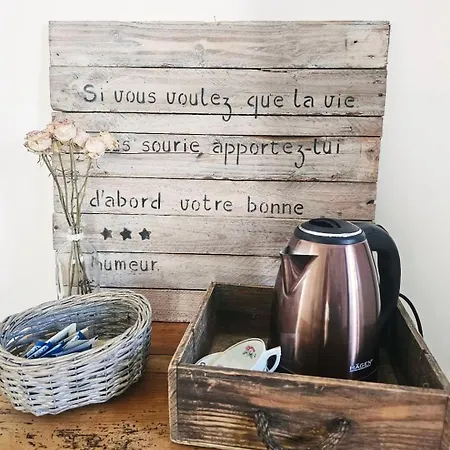 Si vous voulez que la vie
vous sourie apportez-lui
d'abord votre bonne
humeur.
HÄGEN